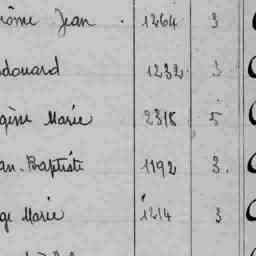 rôme Jean . 1264 3
douard 1232 3
gène Marie 2318 5
an-Baptiste 1192 3.
ge Marie 1214 3